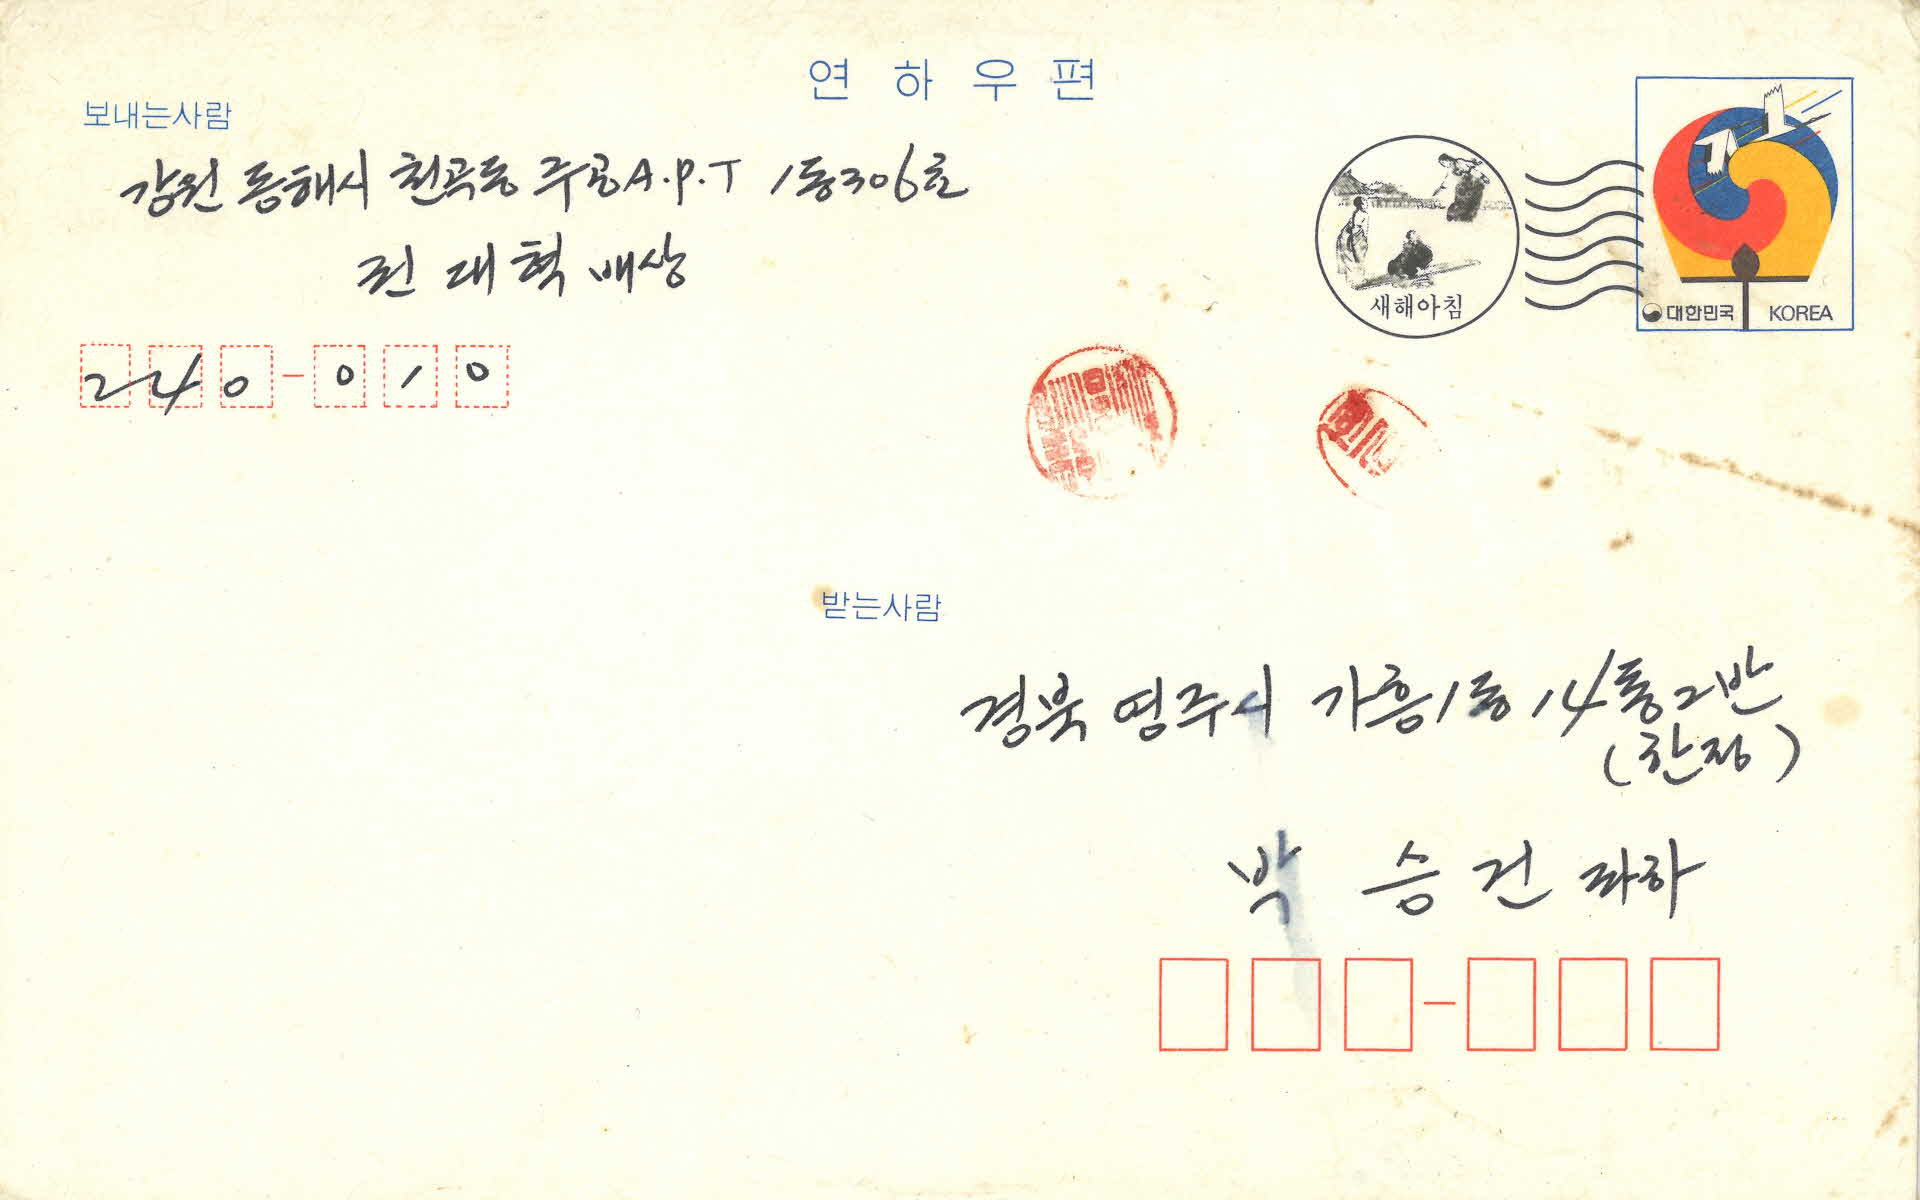 연하우편
보내는사람
강원 동해시 천곡동 주공A.P.T 1동306호
전대혁 배상
240-010
새해아침
대한민국 KOREA
받는사람
경북 영주시 가흥1동 14통2반
(한정)
박승건 좌하